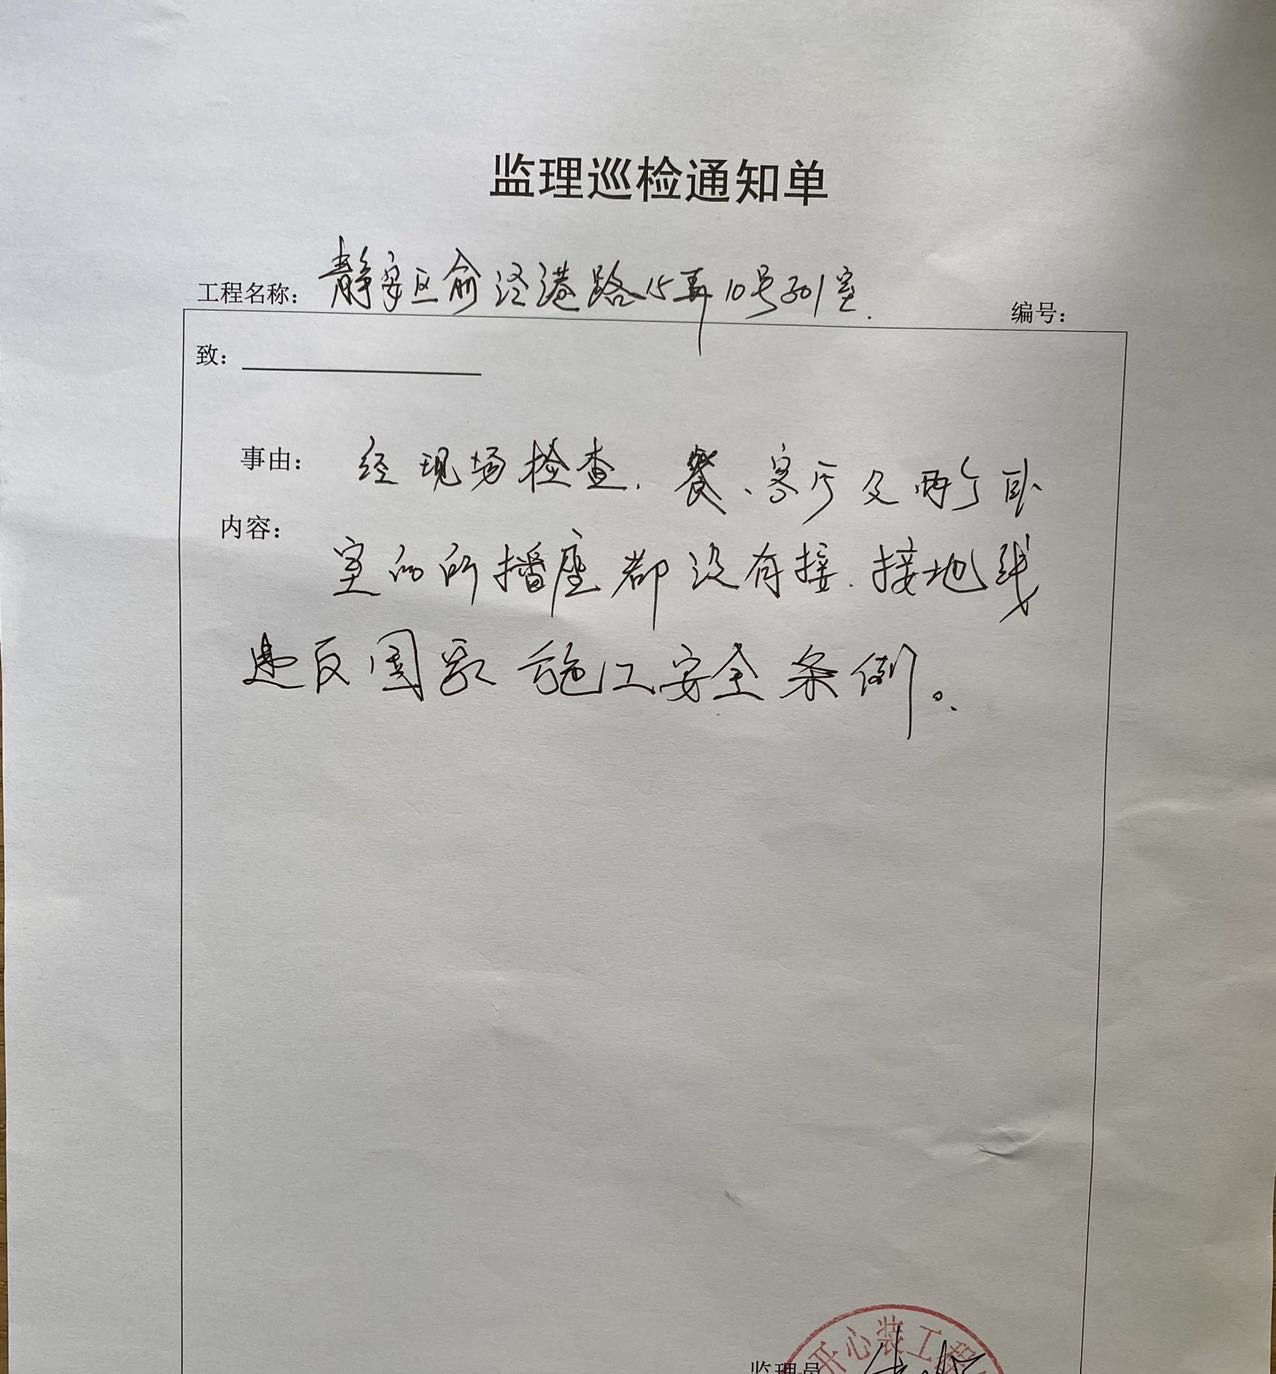 监理巡检通知单
工程名称：静安区俞泾港路15弄10号301室.
编号：
致：
事由：经现场检查、餐、客厅及两个卧
内容：
室的所插座都没有接.接地线
违反国家施工安全条例。
开心装工程
监理员